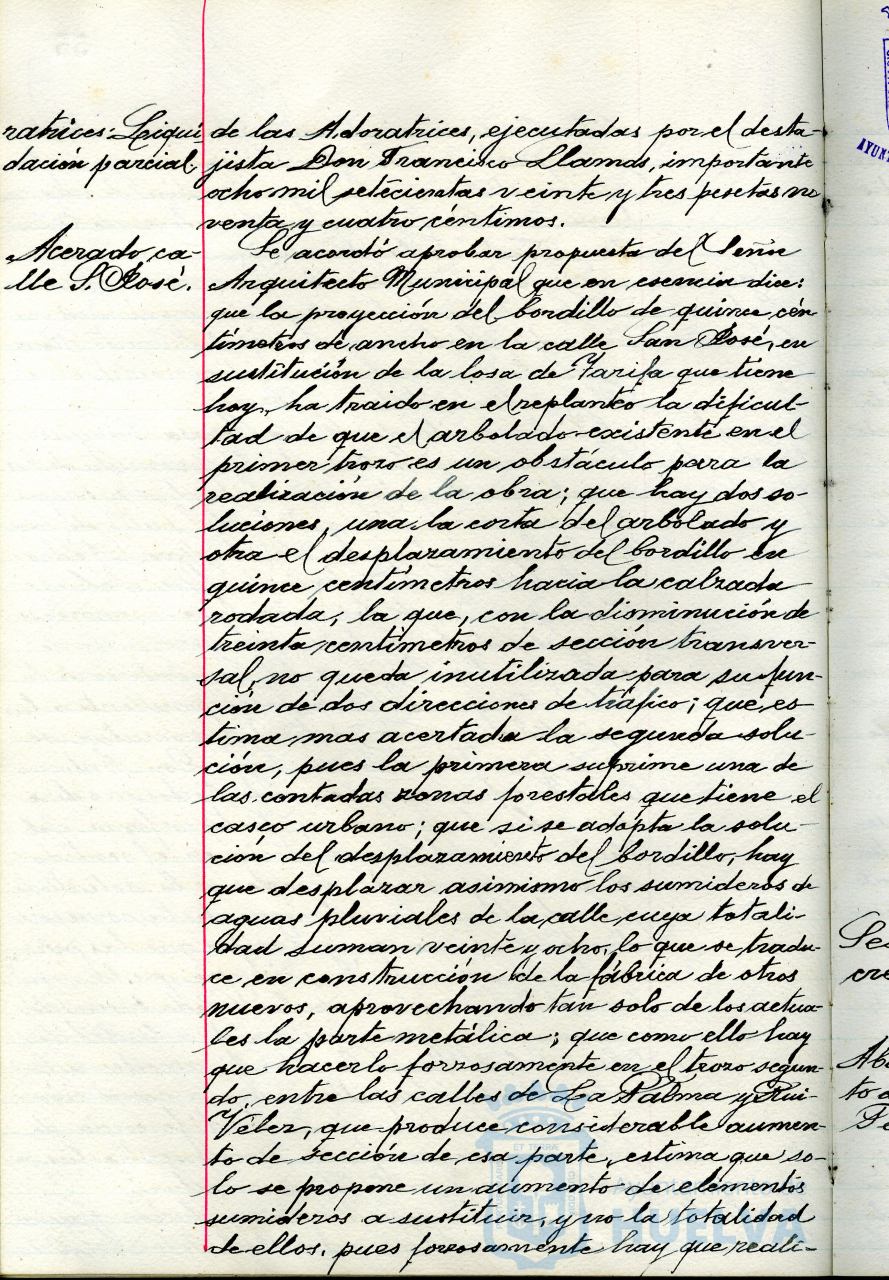 ratrices: Liqui-
dación parcial
de las Adoratrices, ejecutadas por el desta-
jista Don Francisco Llamas, importante
ocho mil setecientas veinte y tres pesetas no
venta y cuatro céntimos.
Acerado ca-
lle S. José.
Se acordó aprobar propuesta del Señor
Arquitecto Municipal que en esencia dice:
que la proyección del bordillo de quince cén-
tímetros de ancho en la calle San José, en
sustitución de la losa de Tarifa que tiene
hoy, ha traido en el replanteo la dificul-
tad de que el arbolado existente en el
primer trozo es un obstáculo para la
realización de la obra; que hay dos so-
luciones, una la corta del arbolado y
otra el desplazamiento del bordillo en
quince centímetros hacia la calzada
rodada, la que, con la disminución de
treinta centímetros de sección transver-
sal, no queda inutilizada para su fun-
ción de dos direcciones de tráfico; que es
tima mas acertada la segunda solu-
ción, pues la primera suprime una de
las contadas zonas forestales que tiene el
casco urbano; que si se adopta la solu-
ción del desplazamiento del bordillo, hay
que desplazar asimismo los sumideros de
aguas pluviales de la calle cuya totali-
dad suman veinte y ocho, lo que se tradu-
ce en construcción de la fábrica de otros
nuevos, aprovechando tan solo de los actua-
les la parte metálica; que como ello hay
que hacerlo forzosamente en el trozo segun-
do, entre las calles de La Palma y Rui-
Vélez, que produce considerable aumen-
to de sección de esa parte, estima que so-
lo se propone un aumento de elementos
sumideros a sustituir, y no la totalidad
de ellos, pues forzosamente hay que reali-
HUELVA